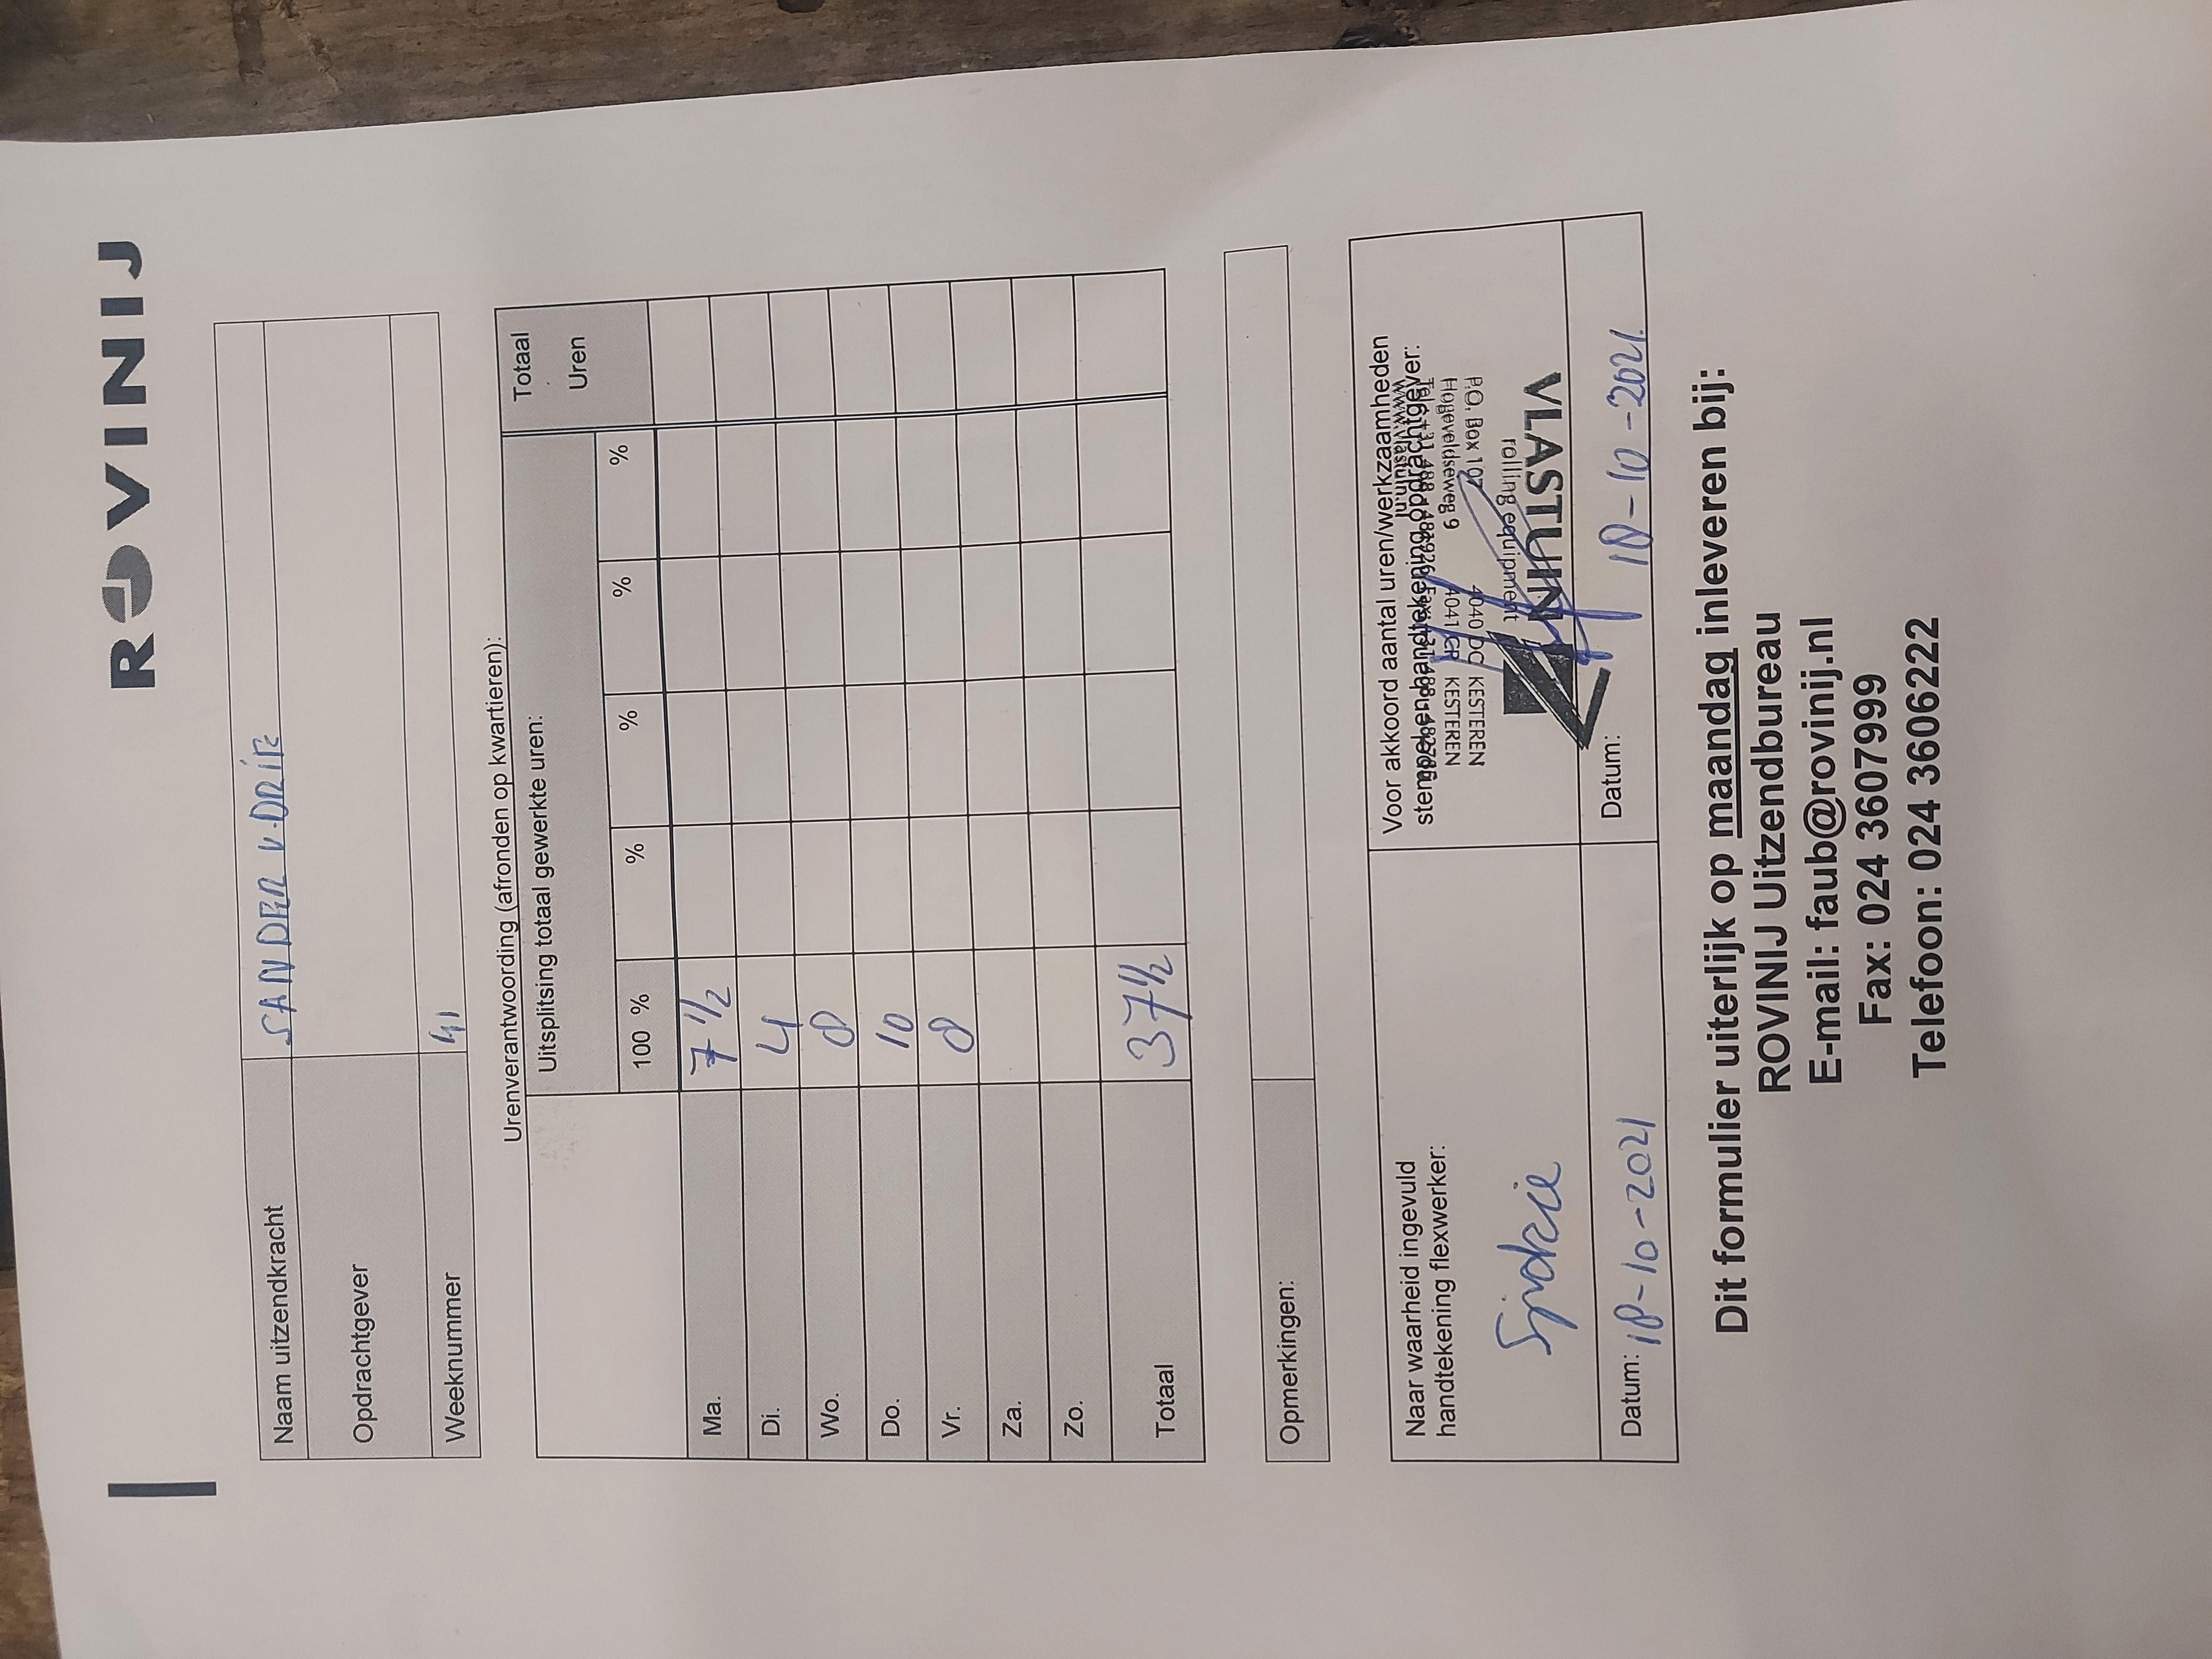 ROVINIJ
Naam uitzendkracht SANDER V. DRIE
Opdrachtgever
Weeknummer 41
Urenverantwoording (afronden op kwartieren):
Uitsplitsing totaal gewerkte uren: Totaal Uren
100 % % % % %
Ma. 7 1/2
Di. 4
Wo. 8
Do. 10
Vr. 8
Za.
Zo.
Totaal 37 1/2
Opmerkingen:
Naar waarheid ingevuld
handtekening flexwerker:
Voor akkoord aantal uren/werkzaamheden
stempel en handtekening opdrachtgever:
VLASTUIN
rolling equipment
P.O. Box 107 4040 DC KESTEREN
Hogeveldseweg 9 4041 CR KESTEREN
www.vlastuin.nl
Datum: 18-10-2021
Datum: 18-10-2021.
Dit formulier uiterlijk op maandag inleveren bij:
ROVINIJ Uitzendbureau
E-mail: faub@rovinij.nl
Fax: 024 3607999
Telefoon: 024 3606222